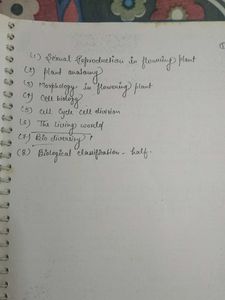 (1) Sexual Reproduction in flowering plant
(2) plant anatomy
(3) Morphology in flowering plant
(4) Cell biology
(5) Cell Cycle cell division
(6) The living world
(7) Bio diversity
(8) Biological classification - half.